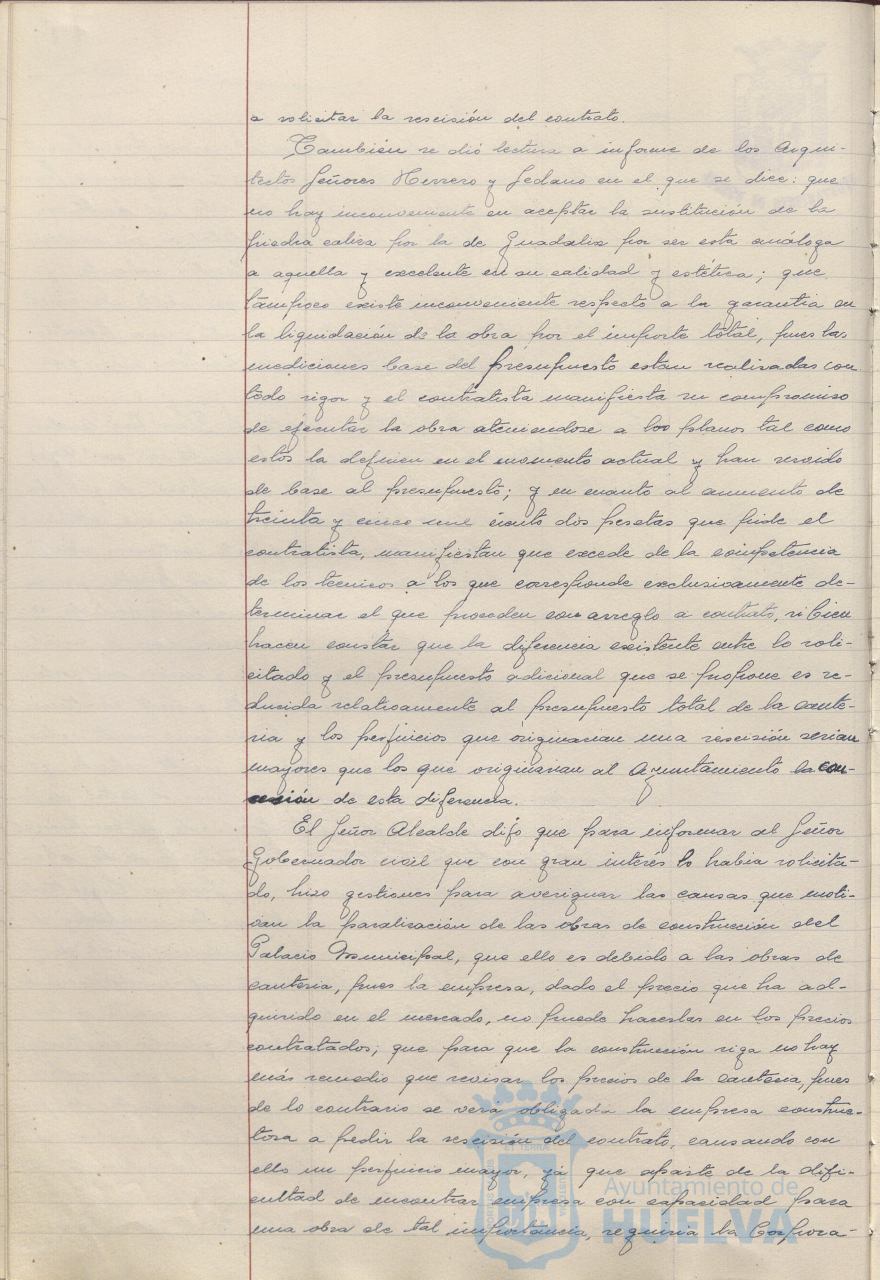 a solicitar la rescisión del contrato.
También se dió lectura a informe de los Arqui-
tectos Señores Herrero y Sedano en el que se dice: que
no hay inconveniente en aceptar la sustitución de la
piedra caliza por la de Guadalix por ser esta análoga
a aquella y excelente en su calidad y estética; que
tampoco existe inconveniente respecto a la garantia en
la liquidación de la obra por el importe total, pues las
mediciones base del presupuesto estan realizadas con
todo rigor y el contratista manifiesta su compromiso
de ejecutar la obra ateniendose a los planos tal como
estos la definen en el momento actual y han servido
de base al presupuesto; y en cuanto al aumento de
treinta y cinco mil ciento dos pesetas que pide el
contratista, manifiestan que excede de la competencia
de los técnicos a los que corresponde exclusivamente de-
terminar el que proceden con arreglo a contrato, si bien
hacen constar que la diferencia existente entre lo soli-
citado y el presupuesto adicional que se propone es re-
ducida relativamente al presupuesto total de la cante-
ria y los perjuicios que originarian una rescisión serian
mayores que los que originarian al Ayuntamiento la con-
cesión de esta diferencia.
El Señor Alcalde dijo que para informar al Señor
Gobernador civil que con gran interés lo habia solicita-
do, hizo gestiones para averiguar las causas que moti-
van la paralización de las obras de construcción del
Palacio Municipal, que ello es debido a las obras de
canteria, pues la empresa, dado el precio que ha ad-
quirido en el mercado, no puede hacerlas en los precios
contratados; que para que la construcción siga no hay
más remedio que revisar los precios de la canteria, pues
de lo contrario se verá obligada la empresa construc-
tora a pedir la rescisión del contrato, causando con
ello un perjuicio mayor, ya que aparte de la difi-
cultad de encontrar empresa con capacidad para
una obra de tal importancia, requiria la Corpora-
Ayuntamiento de
HUELVA